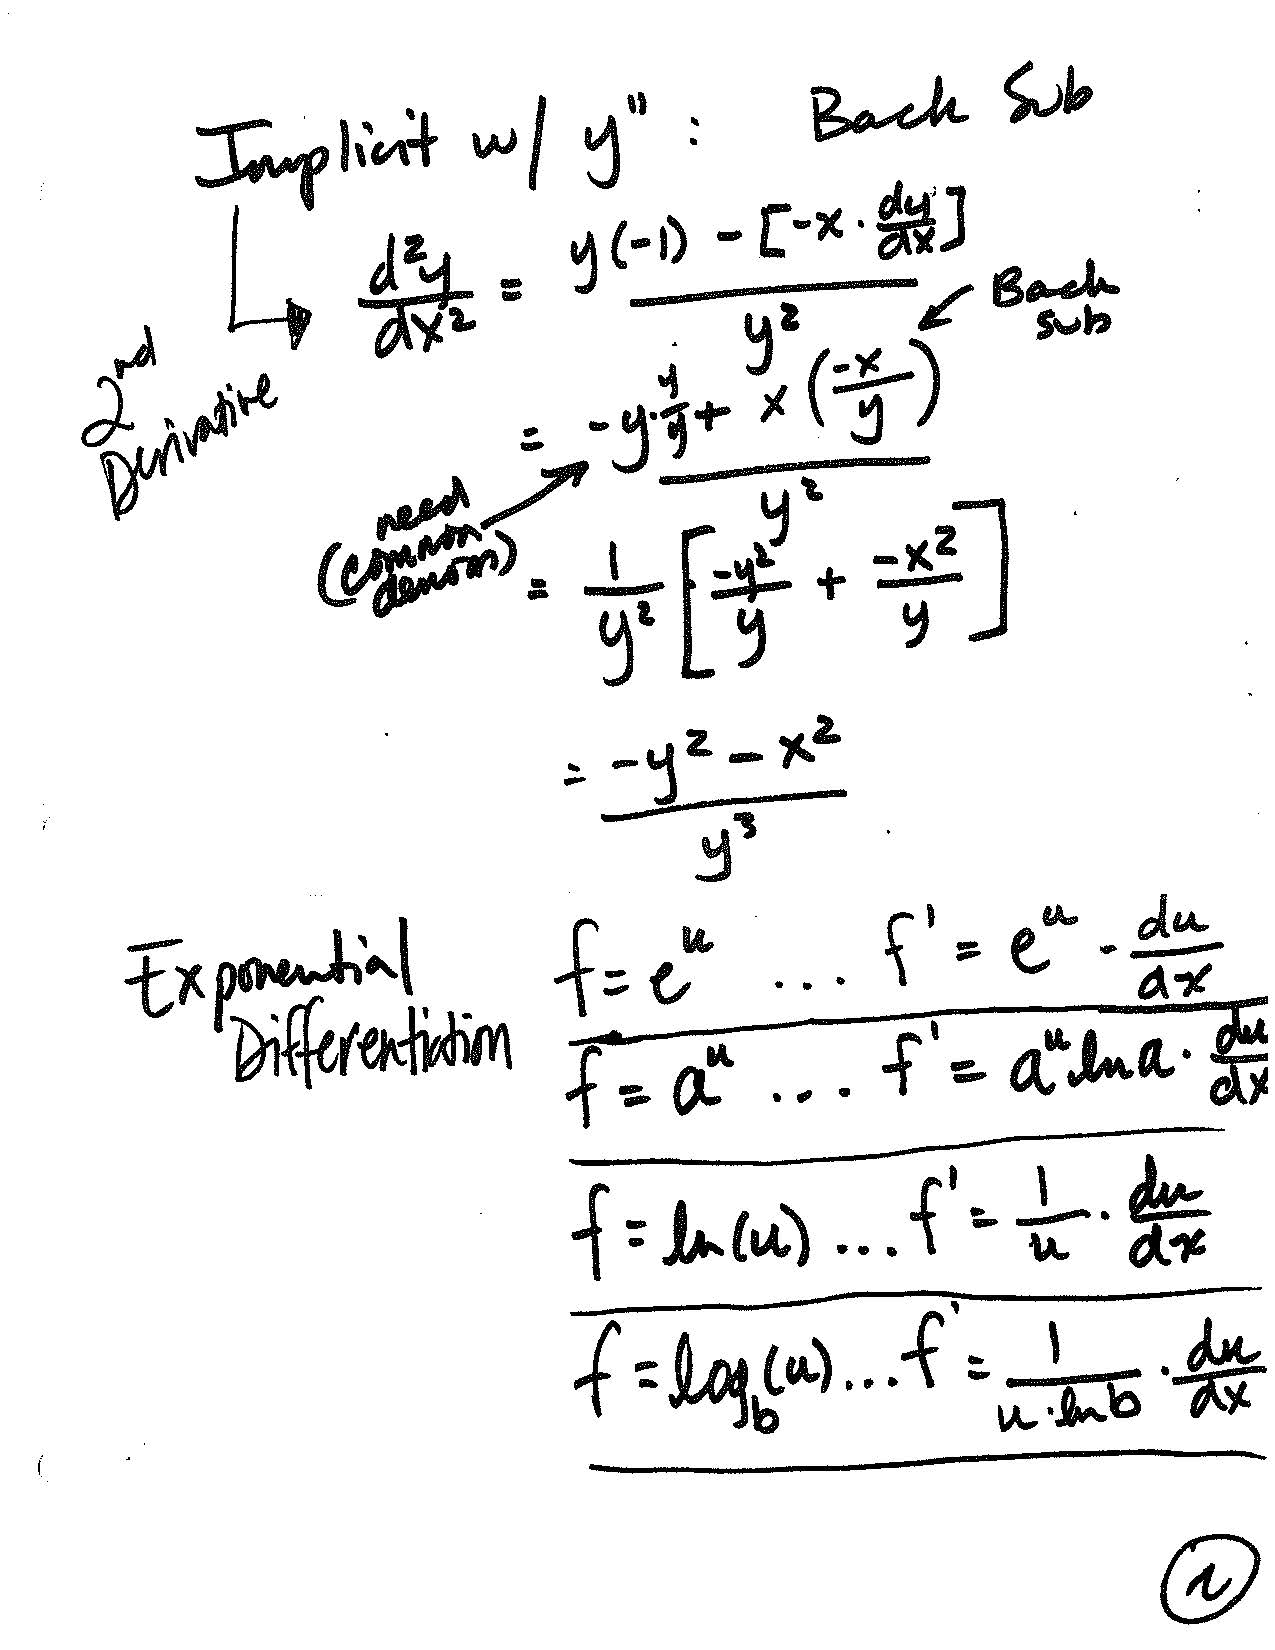 Implicit w/ y'' : Back Sub
2nd Derivative
d²y/dx² = (y(-1) - [-x · dy/dx]) / y²
Back sub
= (-y · y/y + x(-x/y)) / y²
(need common denom)
= 1/y² [-y²/y + -x²/y]
= (-y² - x²) / y³
Exponential Differentiation
f = e^u ... f' = e^u · du/dx
f = a^u ... f' = a^u ln a · du/dx
f = ln(u) ... f' = 1/u · du/dx
f = log_b(u) ... f' = 1/(u · ln b) · du/dx